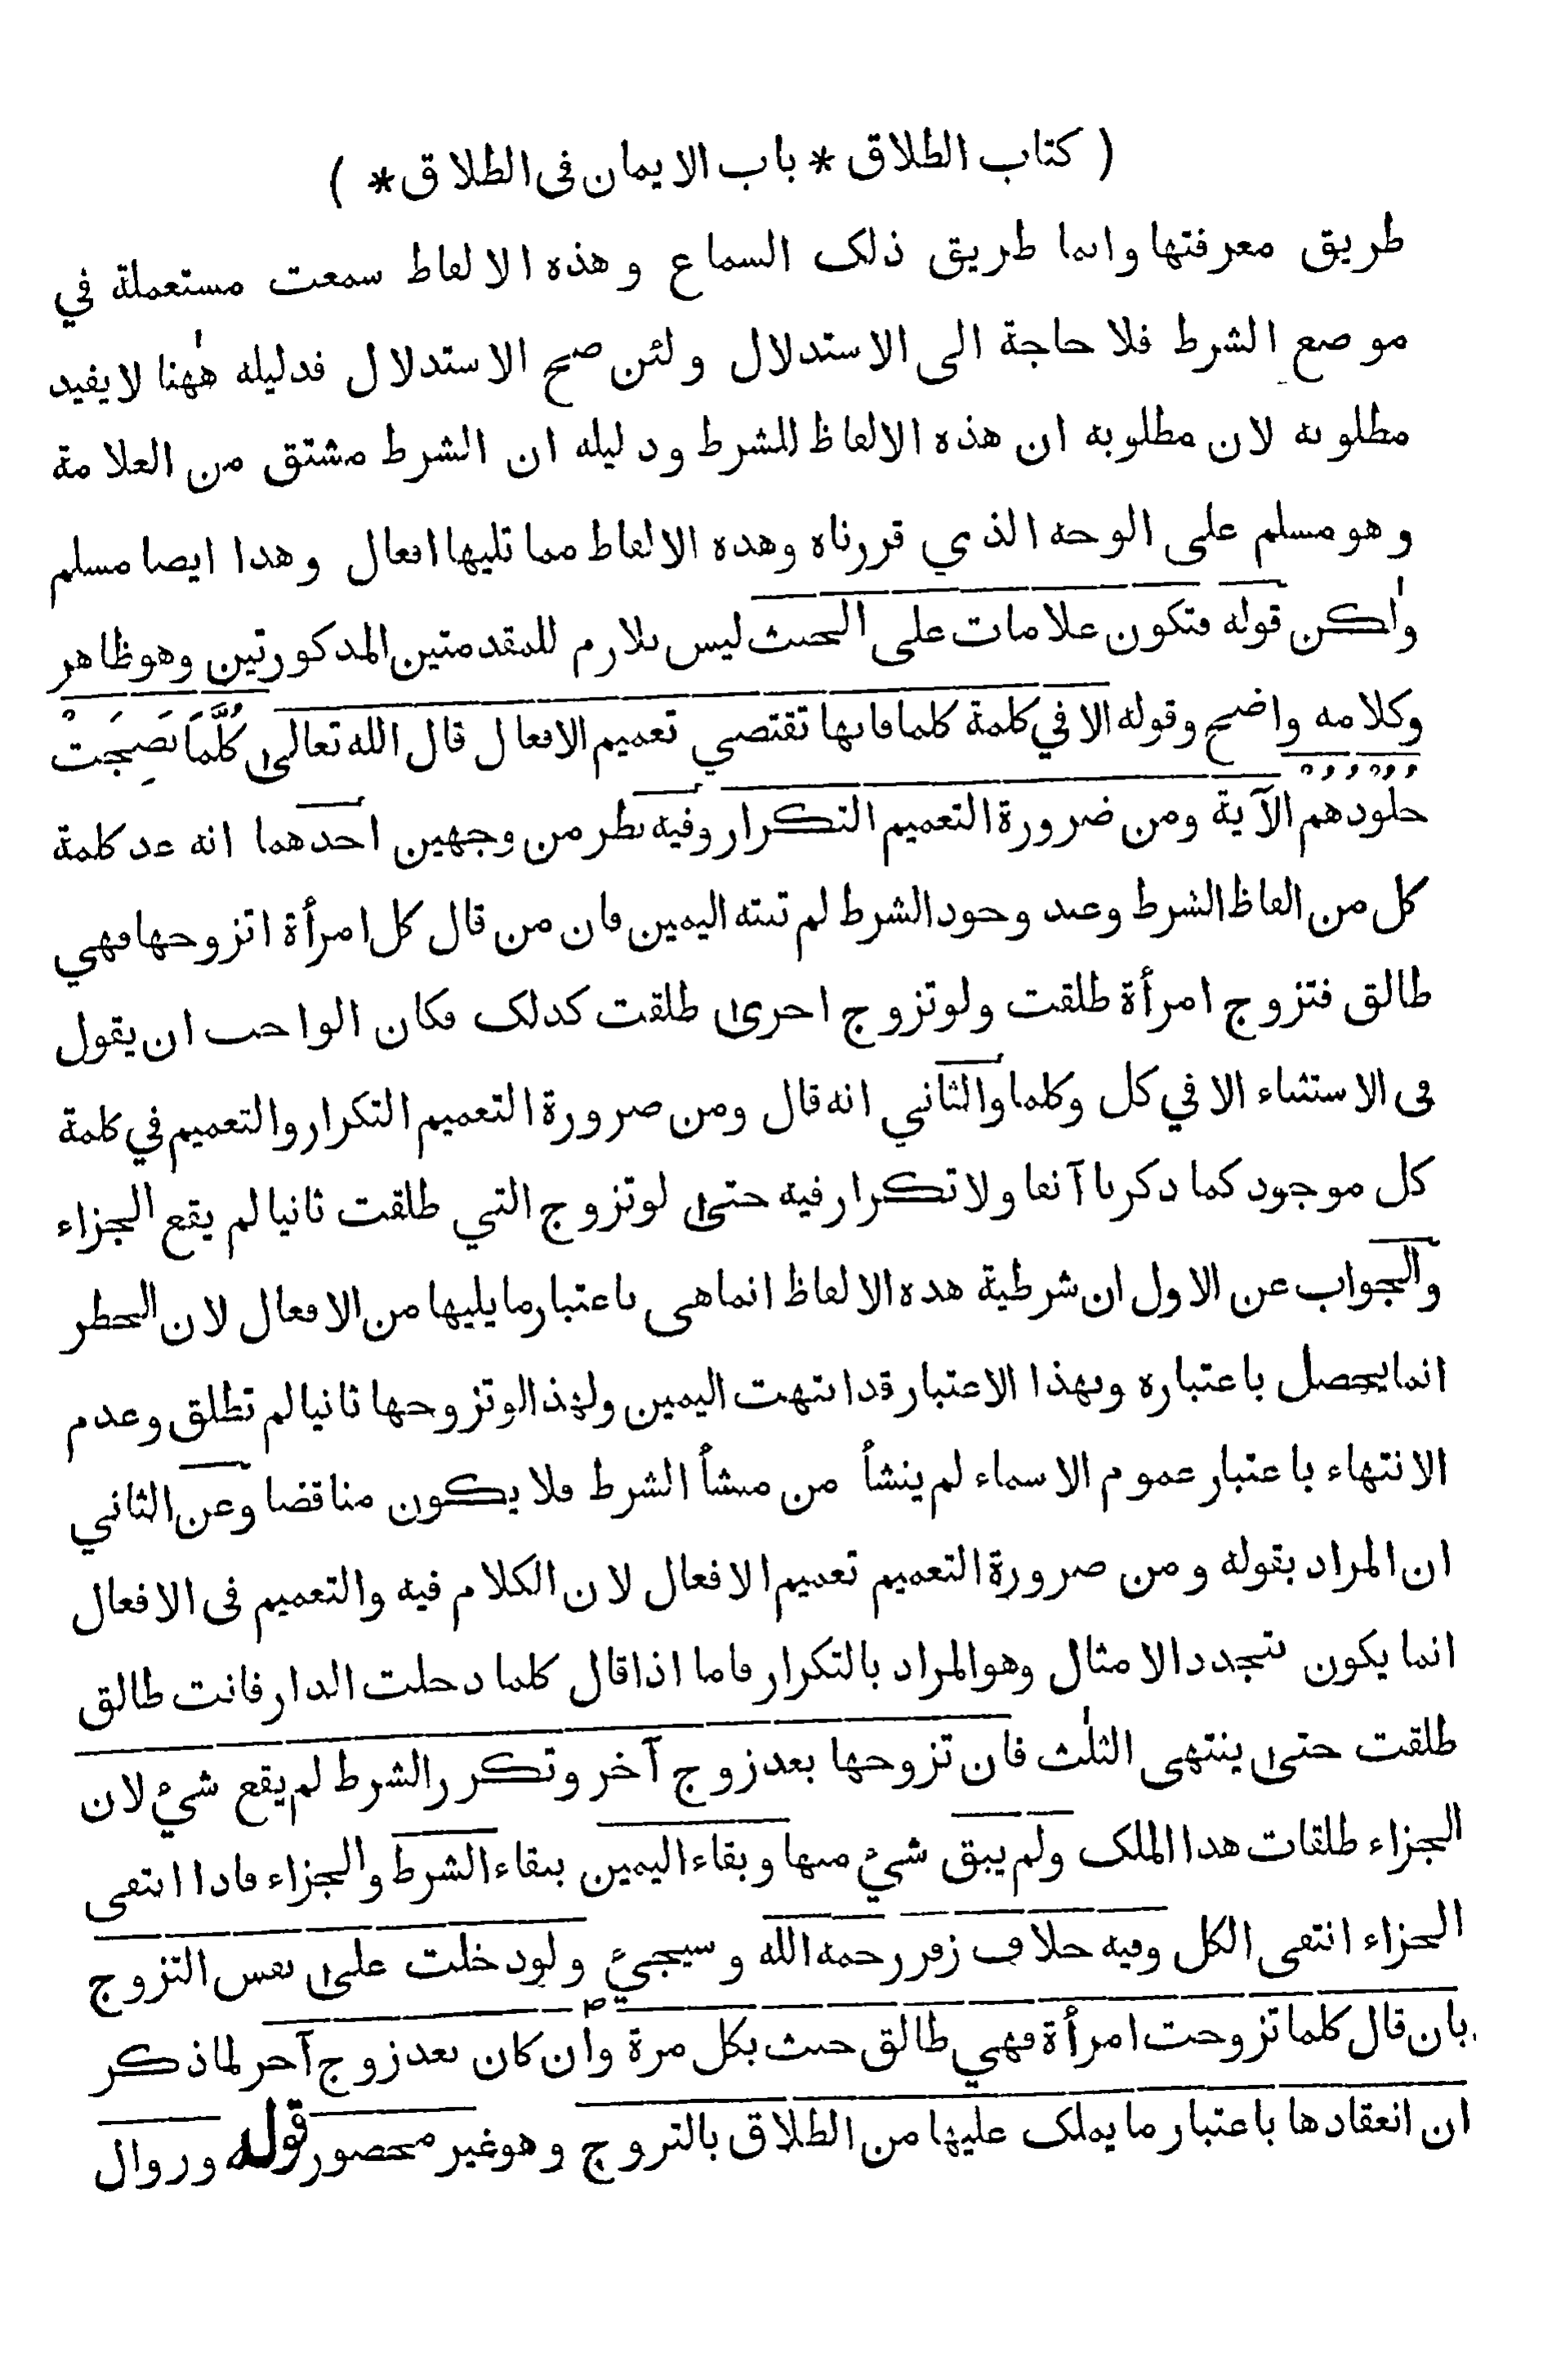 ( كتاب الطلاق * باب الايمان فى الطلاق * )
طريق معرفتها وانما طريق ذلك السماع وهذه الالفاظ سمعت مستعملة في
موضع الشرط فلا حاجة الى الاستدلال ولئن صح الاستدلال فدليله ههنا لا يفيد
مطلوبه لان مطلوبه ان هذه الالفاظ للشرط ودليله ان الشرط مشتق من العلامة
وهو مسلم على الوجه الذي قررناه وهذه الالفاظ مما تليها افعال وهذا ايضا مسلم
ولكن قوله فتكون علامات على الحنث ليس بلازم للمقدمتين المذكورتين وهو ظاهر
وكلامه واضح وقوله الا في كلمة كلما فانها تقتضي تعميم الافعال قال الله تعالى كُلَّمَا نَضِجَتْ
جُلُودُهُمْ الآية ومن ضرورة التعميم التكرار وفيه نظر من وجهين احدهما انه عد كلمة
كل من الفاظ الشرط وعند وجود الشرط لم تنته اليمين فان من قال كل امرأة اتزوجها فهي
طالق فتزوج امرأة طلقت ولو تزوج اخرى طلقت كذلك فكان الواجب ان يقول
فى الاستثناء الا في كل وكلما والثاني انه قال ومن ضرورة التعميم التكرار والتعميم في كلمة
كل موجود كما ذكرنا آنفا ولا تكرار فيه حتى لو تزوج التي طلقت ثانيا لم يقع الجزاء
والجواب عن الاول ان شرطية هذه الالفاظ انما هى باعتبار ما يليها من الافعال لان الخطر
انما يحصل باعتباره وبهذا الاعتبار قد انتهت اليمين ولهذا لو تزوجها ثانيا لم تطلق وعدم
الانتهاء باعتبار عموم الاسماء لم ينشأ من منشأ الشرط فلا يكون مناقضا وعن الثاني
ان المراد بقوله ومن ضرورة التعميم تعميم الافعال لان الكلام فيه والتعميم فى الافعال
انما يكون بتجدد الامثال وهو المراد بالتكرار فاما اذا قال كلما دخلت الدار فانت طالق
طلقت حتى ينتهى الثلث فان تزوجها بعد زوج آخر وتكرر الشرط لم يقع شيء لان
الجزاء طلقات هذا الملك ولم يبق شيء منها وبقاء اليمين ببقاء الشرط والجزاء فاذا انتفى
الجزاء انتفى الكل وفيه خلاف زفر رحمه الله وسيجيء ولو دخلت على نفس التزوج
بان قال كلما تزوجت امرأة فهي طالق حنث بكل مرة وان كان بعد زوج آخر لما ذكر
ان انعقادها باعتبار ما يملك عليها من الطلاق بالتزوج وهو غير محصور قوله وزوال